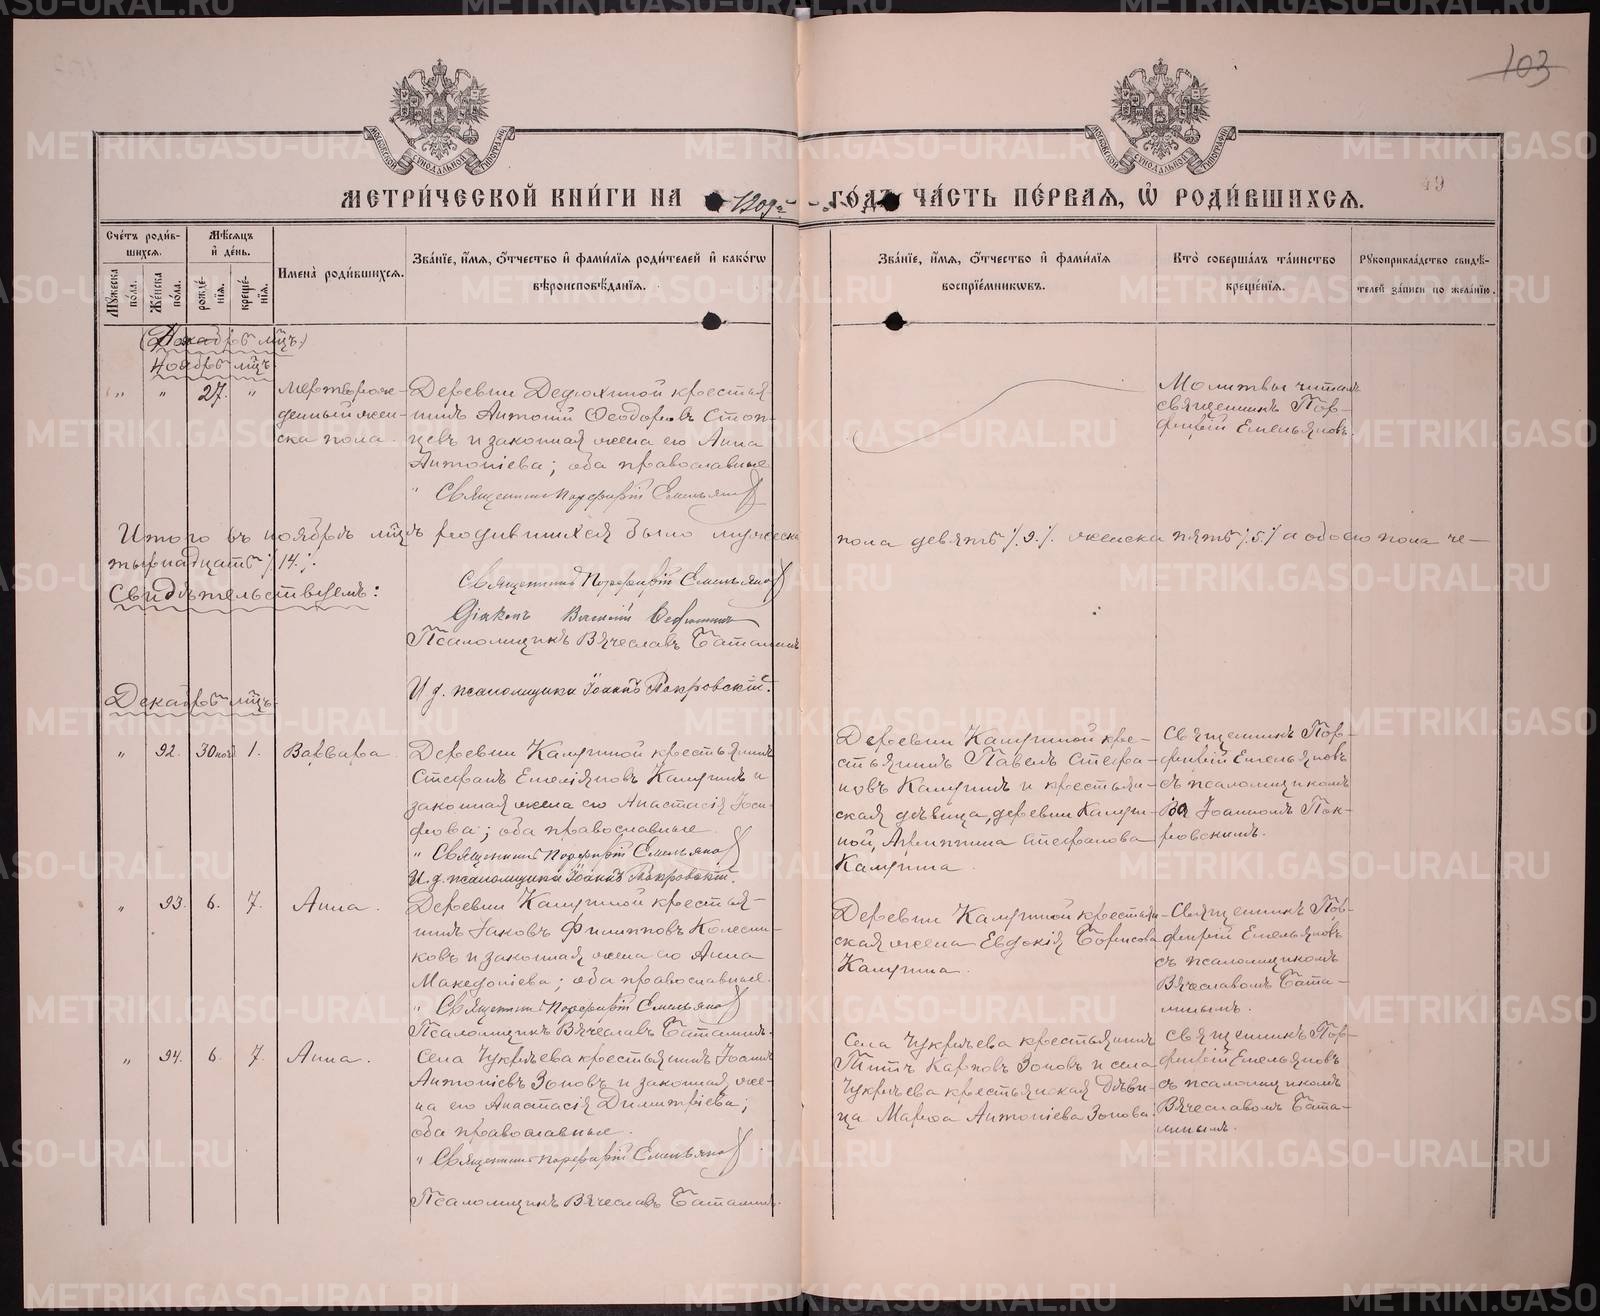 103
МЕТРИ́ЧЕСКОЙ КНИ́ГИ НА 1909 ГО́ДЪ ЧА́СТЬ ПЕ́РВАЯ, Ѡ҆ РОДИ́ВШИХСЯ.
49
Сче́тъ роди́в-
шихся.
Мѣ́сяцъ
и҆ де́нь.
Мꙋ́жеска
по́ла.
Же́нска
по́ла.
рожде́-
нїя.
креще́-
нїя.
Имена̀ роди́вшихся.
Зва́нїе, и҆́мя, ѻ҆́тчество и҆ фами́лїя роди́телей и҆ како́гѡ
вѣроисповѣ́данїя.
Зва́нїе, и҆́мя, ѻ҆́тчество и҆ фами́лїя
воспрїе́мникѡвъ.
Кто̀ соверша́лъ та́инство
креще́нїя.
Рꙋкоприкла́дство свидѣ́-
телей за́писи по жела́нїю.
(Декабрь мцъ)
Ноябрь мцъ.
" " 27. "
Мертворож-
денный жен-
ска пола.
Деревни Дедюхиной крестья-
нинъ Антоній Ѳеодоровъ
и законная жена его Анна
Антоніева; оба православные
" Священникъ Порфирій Емельянов
Молитвы читалъ
священникъ Пор-
фирій Емельяновъ.
Итого въ ноябрѣ мцѣ родившихся было мужеска пола девять /.9./. женска пять /.5./ а обоего пола че-
тырнадцать /.14./.
Свидѣтельствуемъ:
Священникъ Порфирій Емельянов
Діаконъ
Псаломщикъ Вячеславъ Баталинъ
И. д. псаломщика Іоаннъ Покровскій.
Декабрь мцъ.
" 92. 30 нояб 1. Варвара
Деревни Калугиной крестьянинъ
Стефанъ Емеліяновъ Калугинъ и
законная жена его Анастасія Іоси-
фова; оба православные.
" Священникъ Порфирій Емельянов
И. д. псаломщика Іоаннъ Покровскій.
Деревни Калугиной кре-
стьянинъ Павелъ Стефа-
новъ Калугинъ и крестьян-
ская дѣвица, деревни Калуги-
ной, Агриппина Стефанова
Калугина
Священникъ Пор-
фирій Емельяновъ
съ псаломщикомъ
Іоанномъ Пок-
ровскимъ.
" 93. 6. 7. Анна.
Деревни Калугиной крестья-
нинъ Іаковъ Филипповъ Колесни-
ковъ и законная жена его Анна
Македоніева; оба православные.
" Священникъ Порфирій Емельянов
Псаломщикъ Вячеславъ Баталинъ.
Деревни Калугиной крестьян-
ская жена Евдокія Борисова
Калугина.
Священникъ Пор-
фирій Емельяновъ
съ псаломщикомъ
Вячеславомъ Бата-
линымъ.
" 94. 6. 7. Анна.
Села Чукреева крестьянинъ Іоаннъ
Антоніевъ Зоновъ и законная же-
на его Анастасія Димитріева;
оба православные.
" Священникъ Порфирій Емельянов
Псаломщикъ Вячеславъ Баталинъ.
Села Чукреева крестьянинъ
Титъ Карповъ Зоновъ и села
Чукреева крестьянская дѣви-
ца Марѳа Антоніева Зонова.
Священникъ Пор-
фирій Емельяновъ
съ псаломщикомъ
Вячеславомъ Бата-
линымъ.
METRIKI.GASO-URAL.RU